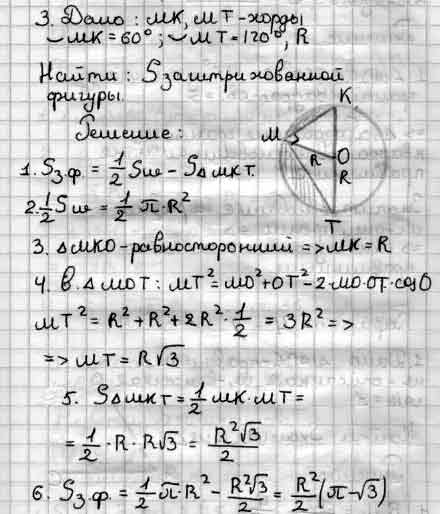 3. Дано: МК, МТ-хорды
◡МК=60°; ◡МТ=120°, R
Найти: S заштрихованной
фигуры.
Решение:
К
М
R
О
R
Т
1. Sз.ф. = 1/2 Sш - S△МКТ.
2. 1/2 Sш = 1/2 π·R²
3. △МКО-равносторонний => МК=R
4. В △МОТ: МТ²=МО²+ОТ²-2·МО·ОТ·cosО
МТ² = R²+R²+2R²·1/2 = 3R² =>
=> МТ = R√3
5. S△МКТ = 1/2 МК·МТ =
= 1/2 · R · R√3 = R²√3/2
6. Sз.ф. = 1/2 π·R² - R²√3/2 = R²/2 (π-√3)